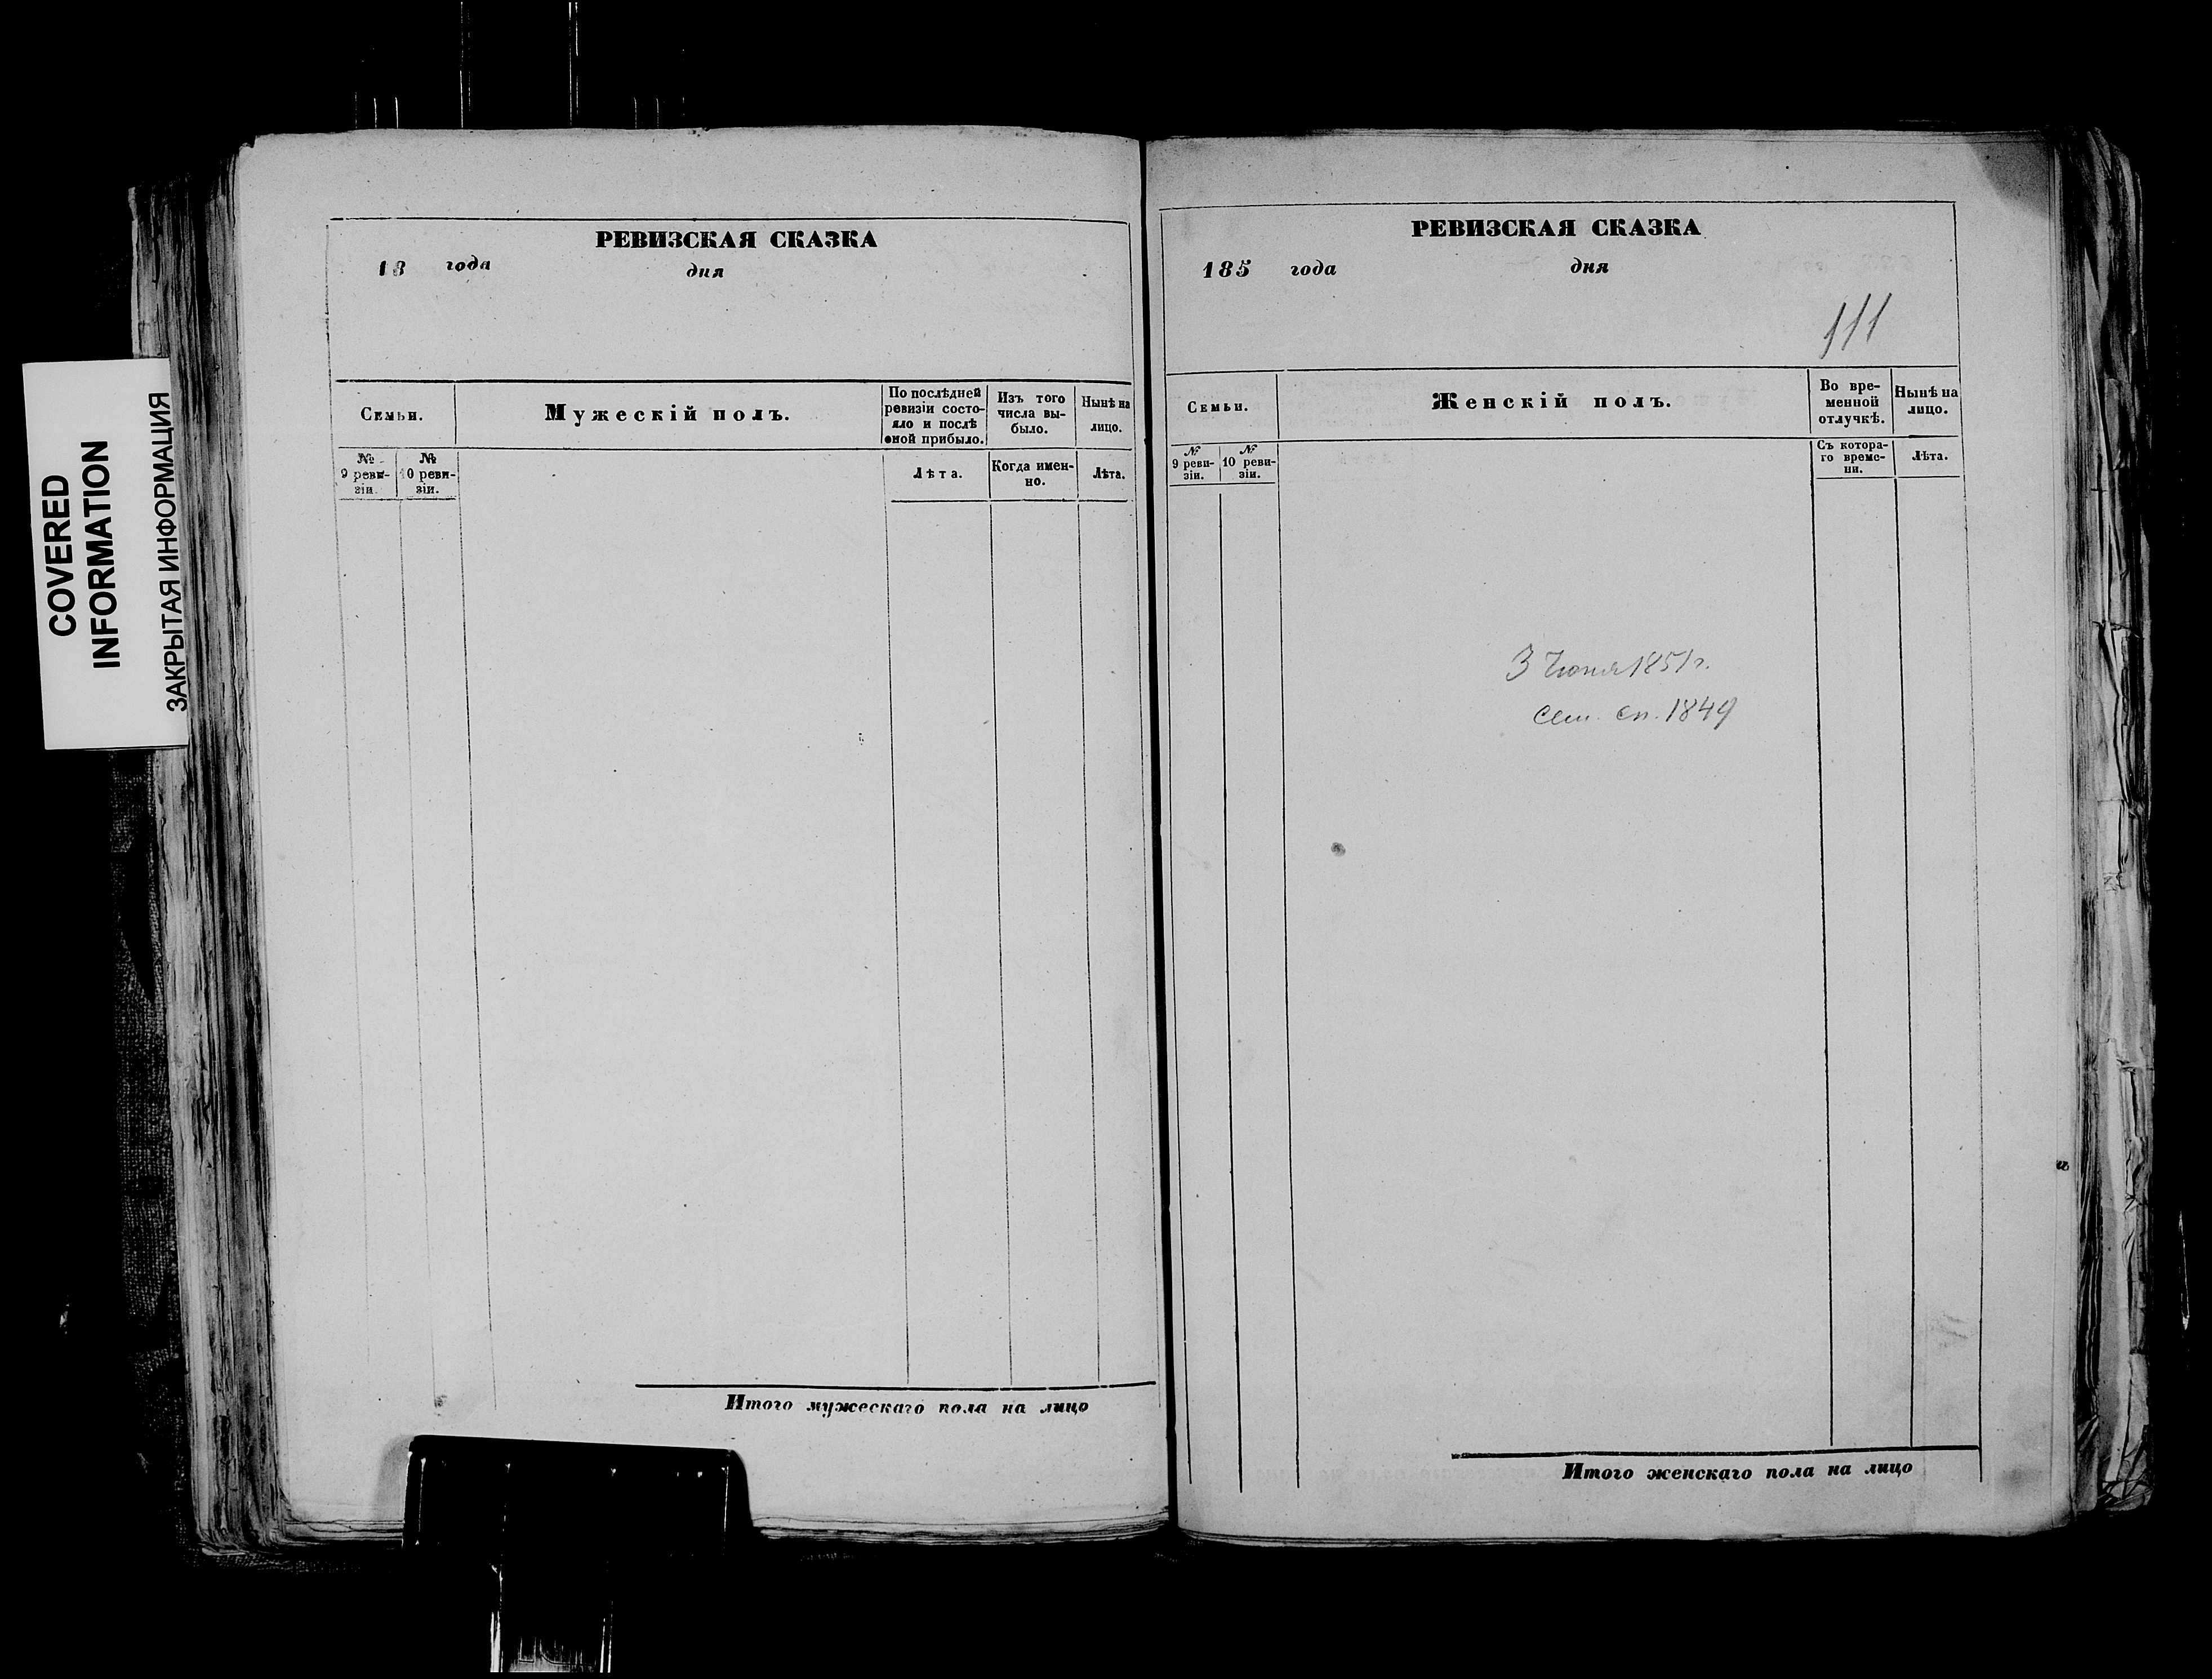 COVERED
INFORMATION
ЗАКРЫТАЯ ИНФОРМАЦИЯ
РЕВИЗСКАЯ СКАЗКА
18 года дня
Семьи.
Мужескій полъ.
По послѣдней
ревизіи состо-
яло и послѣ
оной прибыло.
Изъ того
числа вы-
было.
Нынѣ на
лицо.
№
9 реви-
зіи.
№
10 реви-
зіи.
Лѣта.
Когда имен-
но.
Лѣта.
Итого мужескаго пола на лицо
РЕВИЗСКАЯ СКАЗКА
185 года дня
111
Семьи.
Женскій полъ.
Во вре-
менной
отлучкѣ.
Нынѣ на
лицо.
№
9 реви-
зіи.
№
10 реви-
зіи.
Съ котора-
го време-
ни.
Лѣта.
3 Июня 1851 г.
Сем. сп. 1849
Итого женскаго пола на лицо